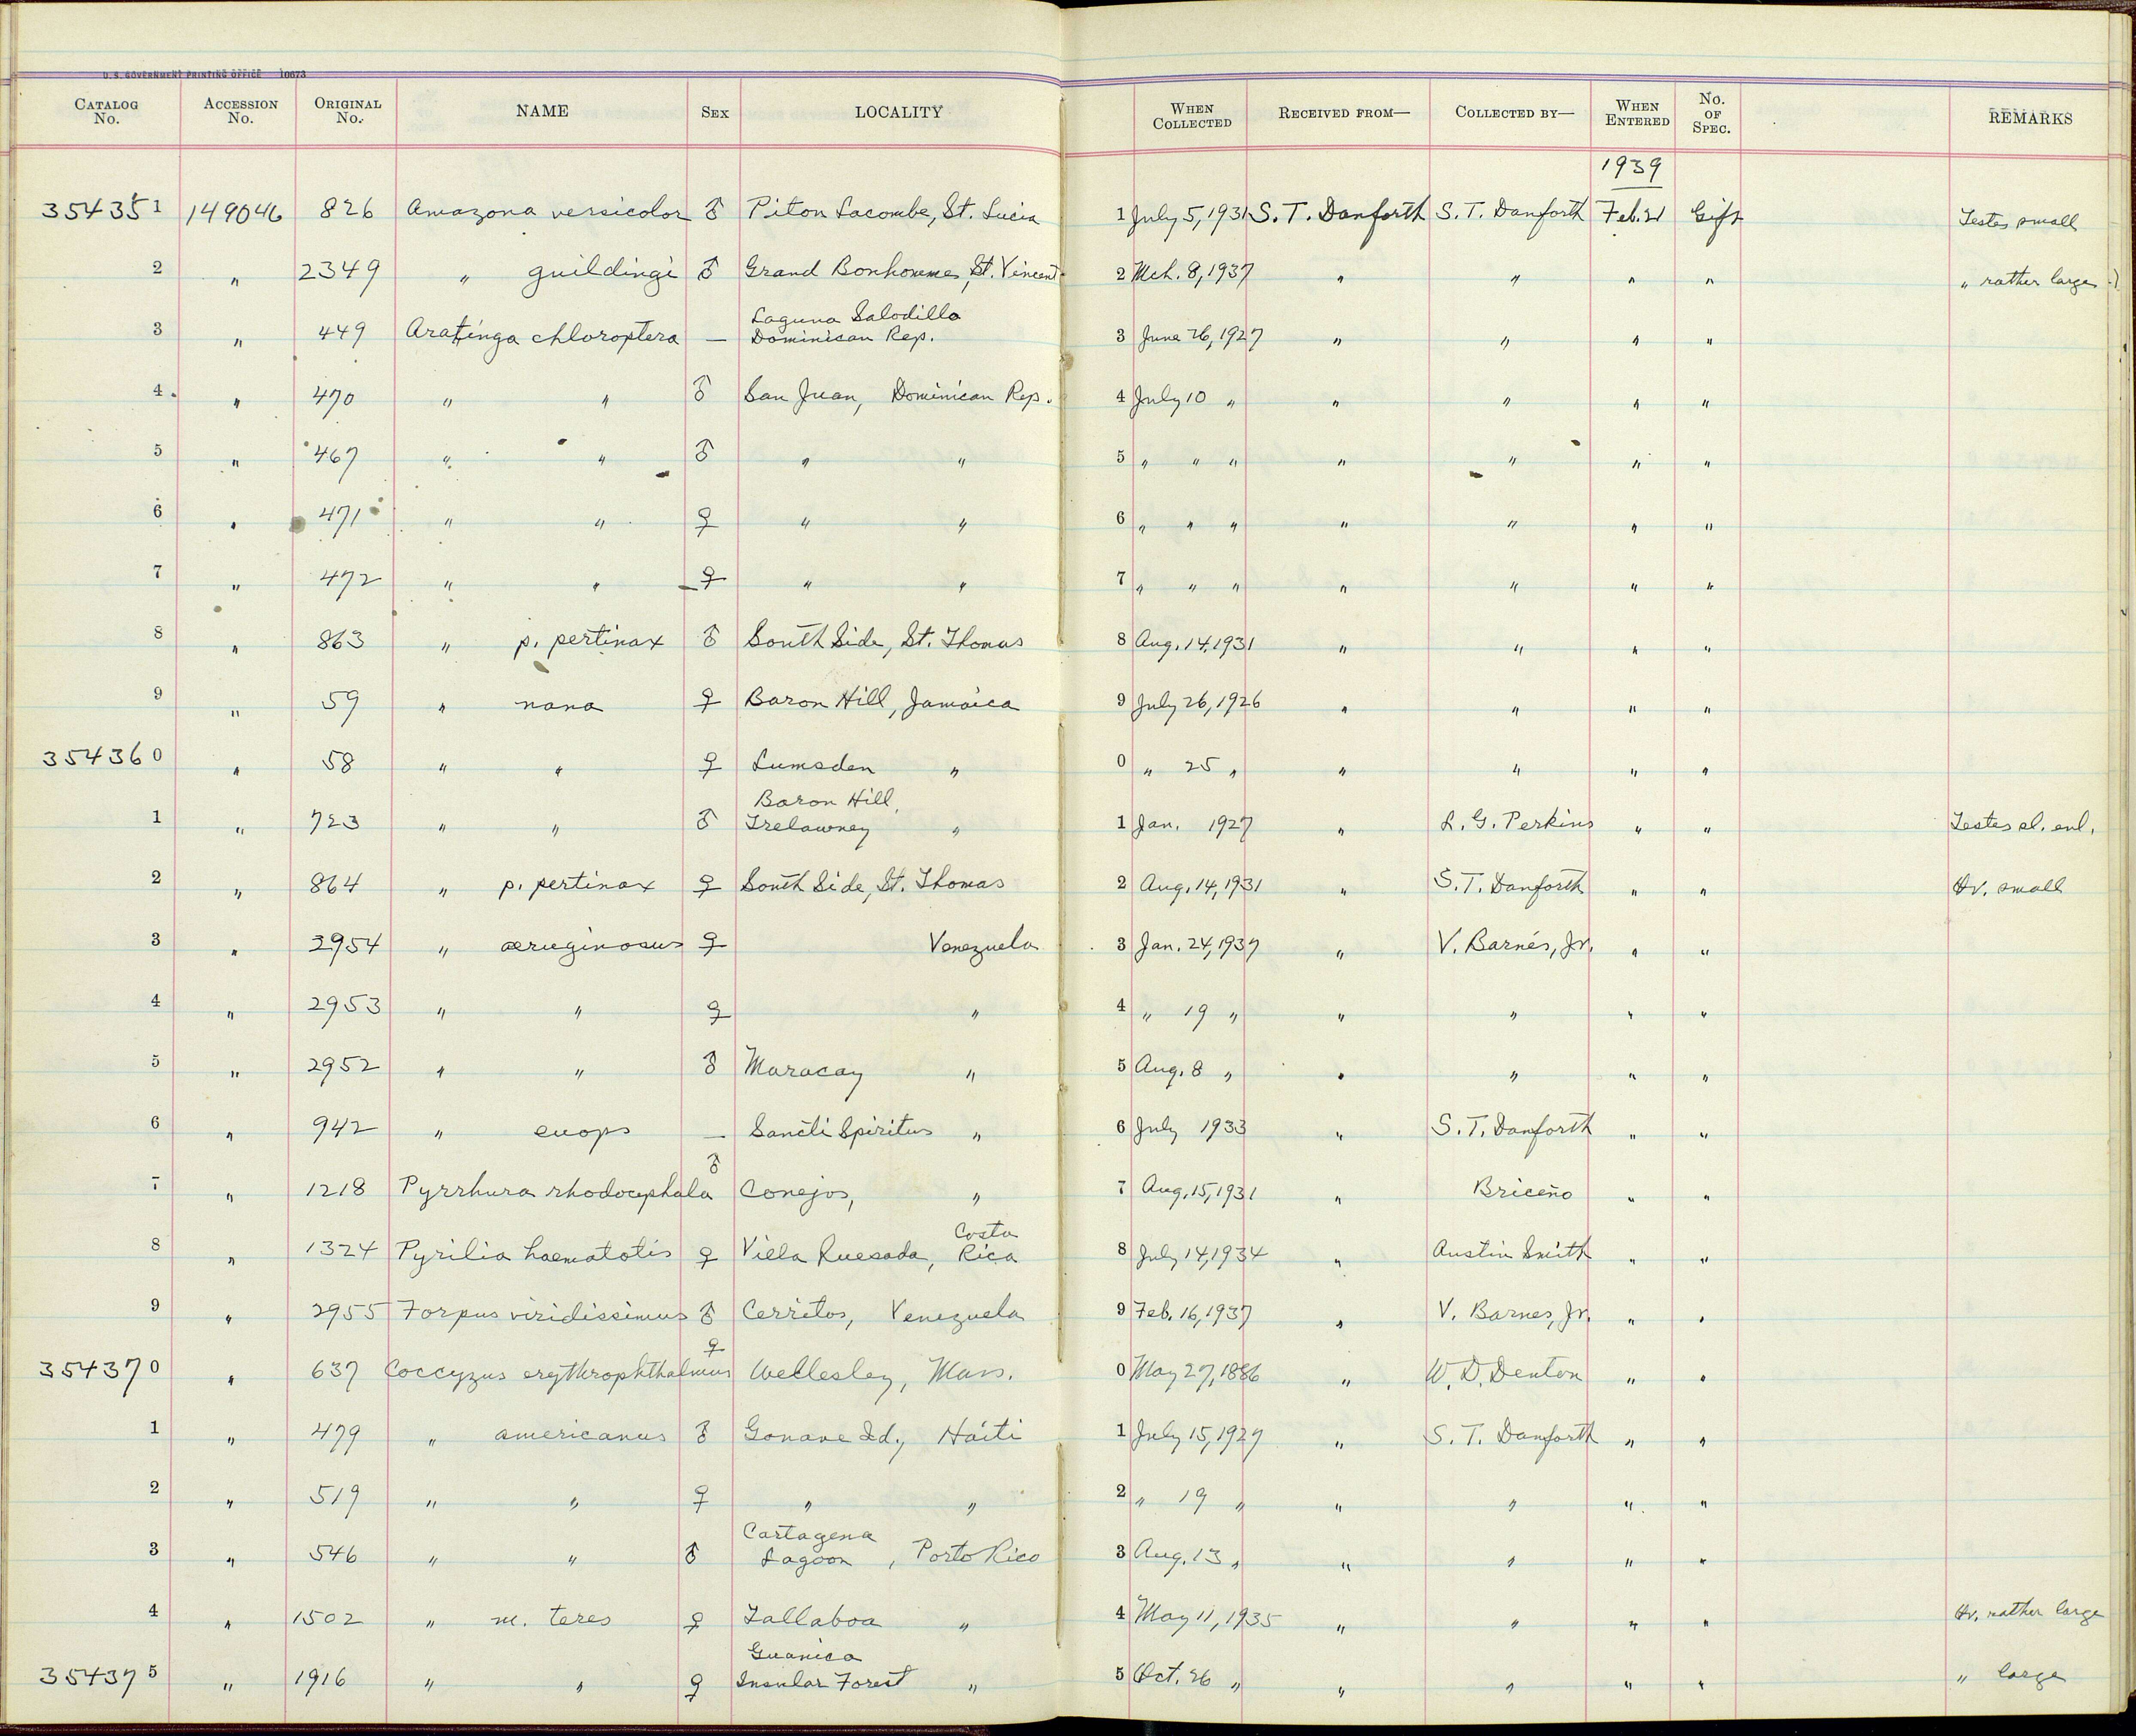 U. S. GOVERNMENT PRINTING OFFICE 10673
CATALOG No. ACCESSION No. ORIGINAL No. NAME SEX LOCALITY WHEN COLLECTED RECEIVED FROM— COLLECTED BY— WHEN ENTERED No. OF SPEC. REMARKS
1939
354351 149046 826 Amazona versicolor ♂ Piton Lacombe, St. Lucia 1 July 5, 1931 S. T. Danforth S. T. Danforth Feb. 21 Gift Testes small
2 " 2349 " guildingi ♂ Grand Bonhomme, St. Vincent 2 Mch. 8, 1937 " " " " " rather large
3 " 449 Aratinga chloroptera — Laguna Salodillo Dominican Rep. 3 June 26, 1927 " " " "
4 " 470 " " ♂ San Juan, Dominican Rep. 4 July 10 " " " " "
5 " 467 " " ♂ " " 5 " " " " " " "
6 " 471 " " ♀ " " 6 " " " " " " "
7 " 472 " " ♀ " " 7 " " " " " " "
8 " 863 " p. pertinax ♂ South Side, St. Thomas 8 Aug. 14, 1931 " " " "
9 " 59 " nana ♀ Baron Hill, Jamaica 9 July 26, 1926 " " " "
354360 " 58 " " ♀ Lumsden " 0 " 25 " " " " "
1 " 723 " " ♂ Baron Hill, Trelawney " 1 Jan. 1927 " L. G. Perkins " " Testes sl. enl.
2 " 864 " p. pertinax ♀ South Side, St. Thomas 2 Aug. 14, 1931 " S. T. Danforth " " Ov. small
3 " 2954 " aeruginosus ♀ Venezuela 3 Jan. 24, 1937 " V. Barnés, Jr. " "
4 " 2953 " " ♀ " 4 " 19 " " " " "
5 " 2952 " " ♂ Maracay " 5 Aug. 8 " " " " "
6 " 942 " euops — Sancti Spiritus " 6 July 1933 " S. T. Danforth " "
7 " 1218 Pyrrhura rhodocephala ♂ Conejos, " 7 Aug. 15, 1931 " Briceño " "
8 " 1324 Pyrilia haematotis ♀ Villa Quesada, Costa Rica 8 July 14, 1934 " Austin Smith " "
9 " 2955 Forpus viridissimus ♂ Cerritos, Venezuela 9 Feb. 16, 1937 " V. Barnes, Jr. " "
354370 " 637 Coccyzus erythrophthalmus ♀ Wellesley, Mass. 0 May 27, 1886 " W. D. Denton " "
1 " 479 " americanus ♂ Gonave Id., Haiti 1 July 15, 1927 " S. T. Danforth " "
2 " 519 " " ♀ " " 2 " 19 " " " " "
3 " 546 " " ♂ Cartagena Lagoon, Porto Rico 3 Aug. 13 " " " " "
4 " 1502 " m. teres ♀ Tallaboa " 4 May 11, 1935 " " " " Ov. rather large
354375 " 1916 " " ♀ Guanica Insular Forest " 5 Oct. 26 " " " " " " large